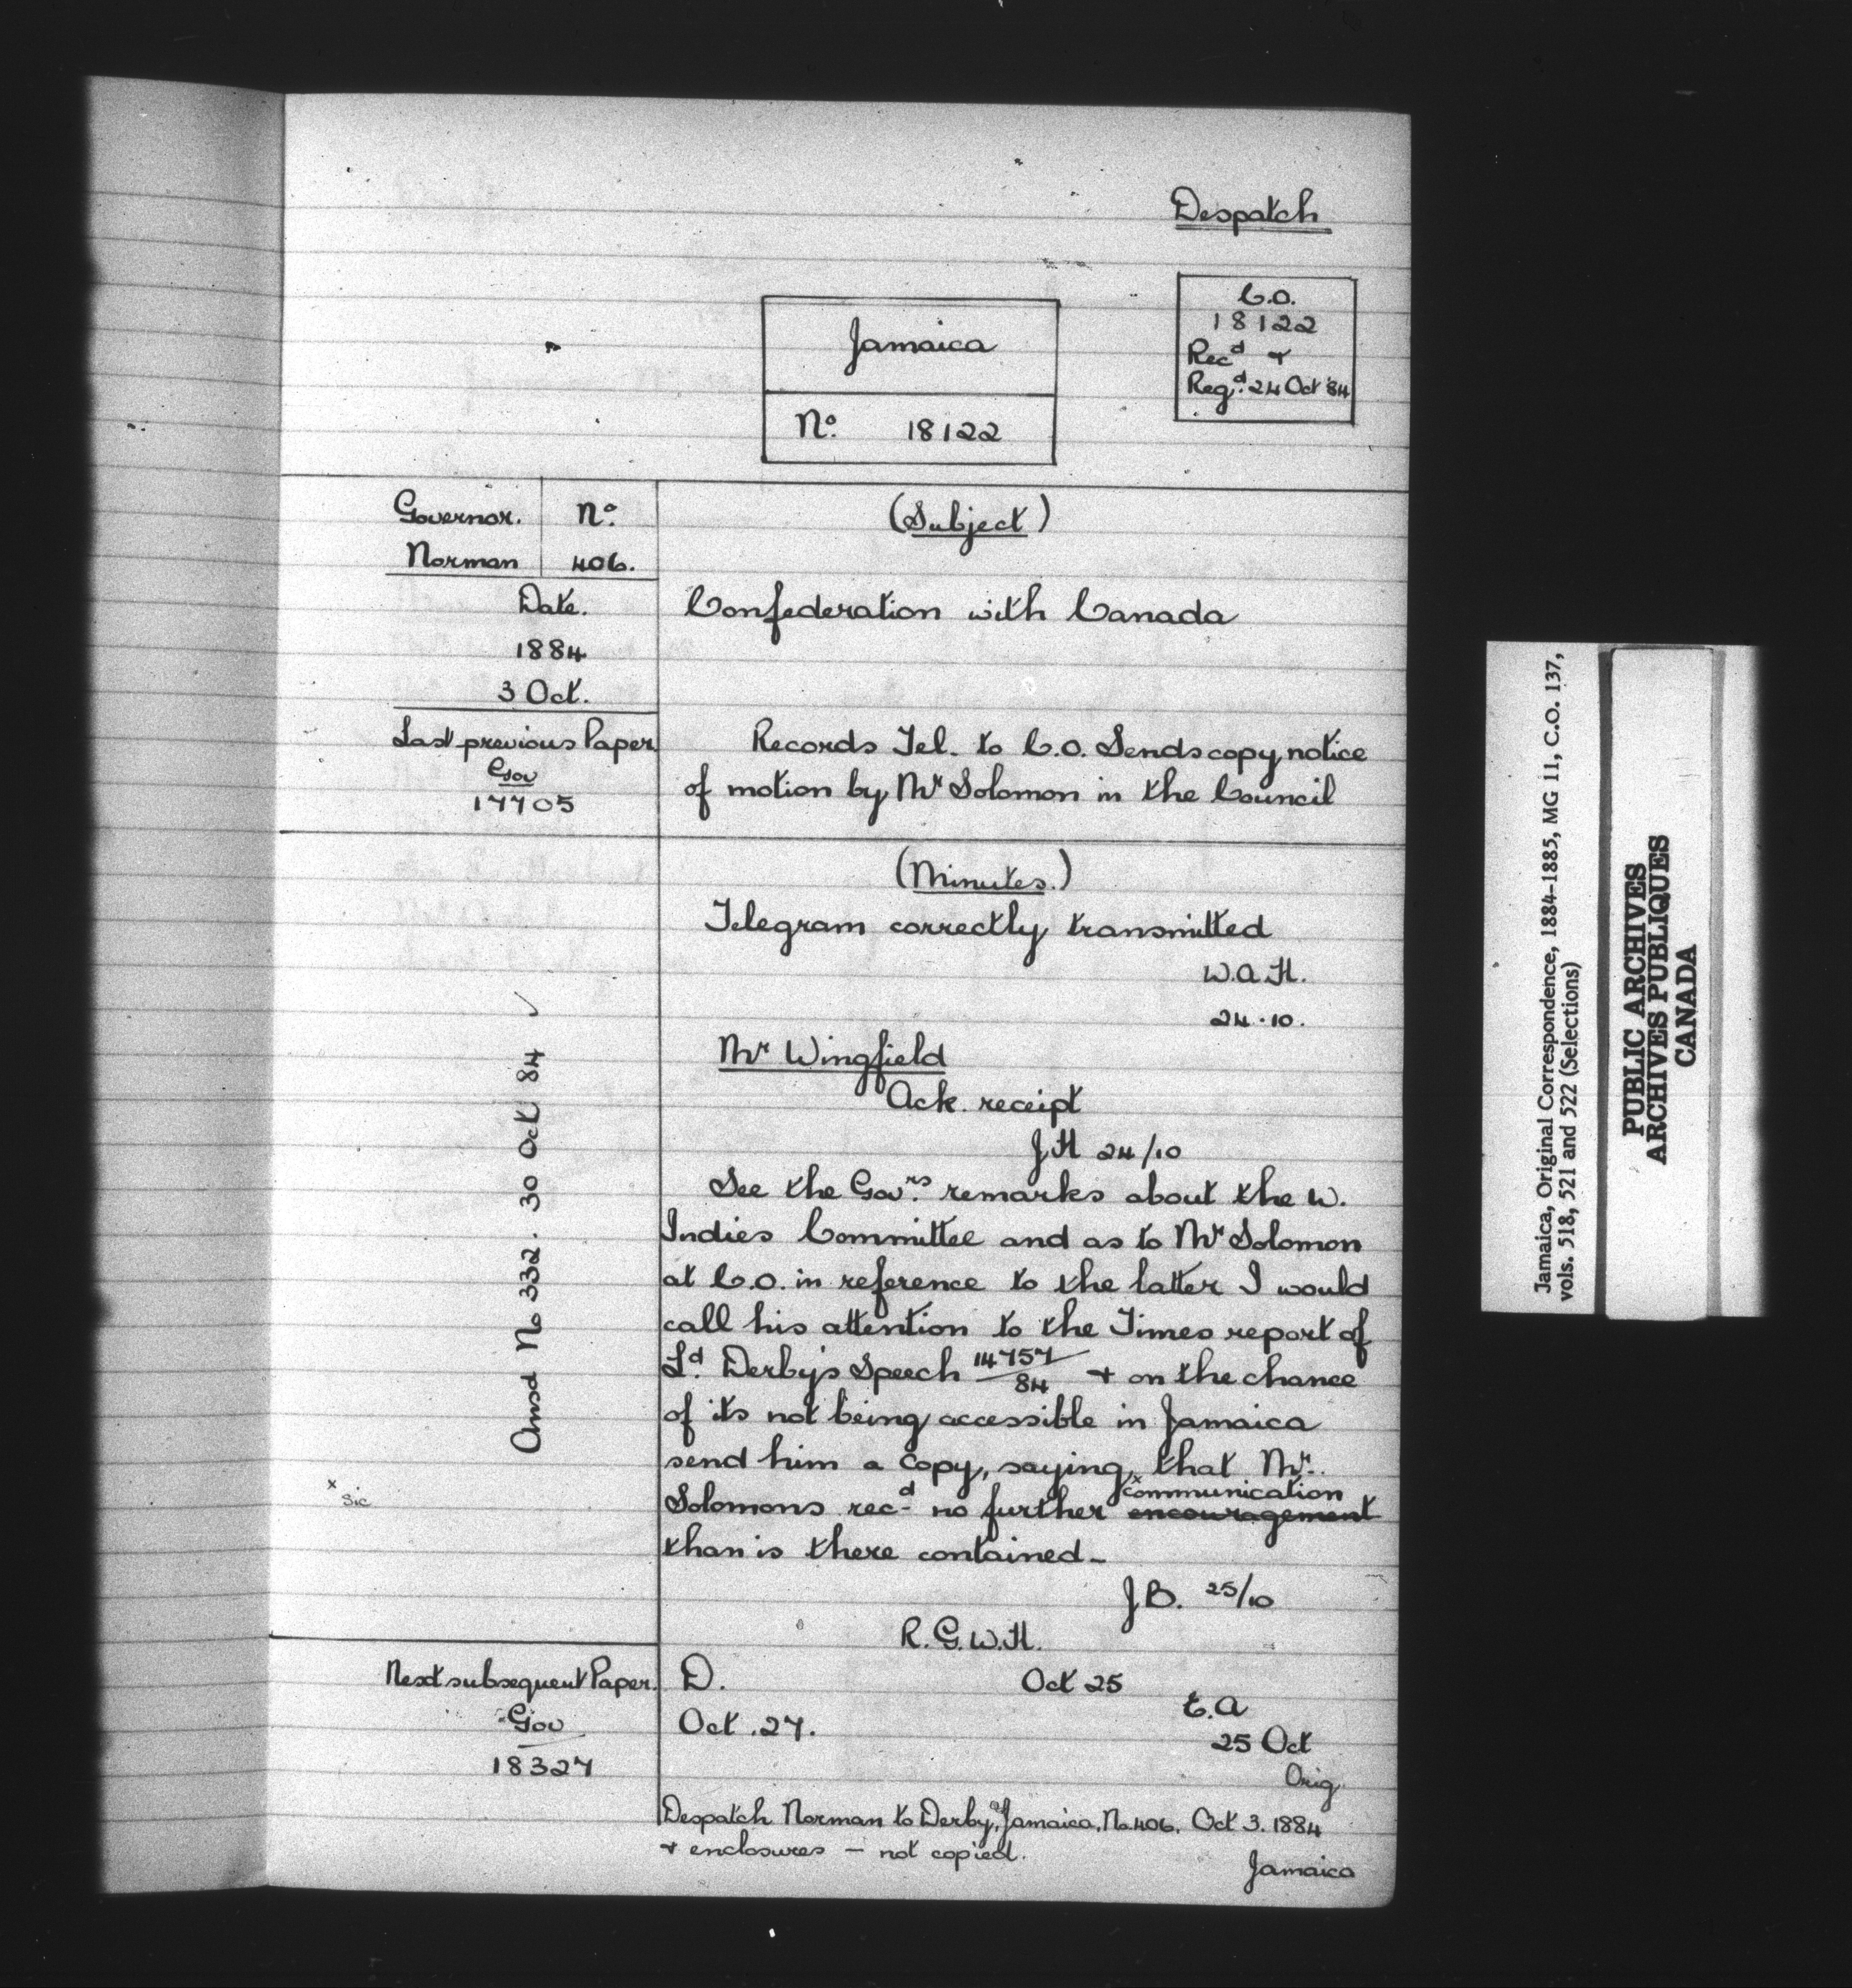 Despatch
C.O.
18122
Recd +
Regd. 24 Oct '84
Jamaica
No. 18122
Governor. No.
Norman 406.
Date.
1884
3 Oct.
Last previous Paper
Gov
17705
(Subject)
Confederation with Canada
Records Tel. to C.O. Sends copy notice
of motion by Mr Solomon in the Council
(Minutes.)
Telegram correctly transmitted
W.A.H.
24.10.
Mr Wingfield
Ack. receipt
J.H 24/10
See the Govrs. remarks about the W.
Indies Committee and as to Mr Solomon
at C.O. in reference to the latter I would
call his attention to the Times report of
Ld. Derby's Speech 14757/84 + on the chance
of its not being accessible in Jamaica
send him a copy, saying that Mr.
x communication
Solomons recd no further encouragement
than is there contained -
J.B. 25/10
R.G.W.H.
Oct 25
D.
Oct. 27.
E.A
25 Oct
Orig.
Ansd No 332. 30 Oct 84 ✓
x sic
Next subsequent Paper.
Gov
18327
Despatch Norman to Derby, Jamaica, No. 406, Oct 3. 1884
+ enclosures - not copied.
Jamaica
Jamaica, Original Correspondence, 1884-1885, MG 11, C.O. 137,
vols. 518, 521 and 522 (Selections)
PUBLIC ARCHIVES
ARCHIVES PUBLIQUES
CANADA